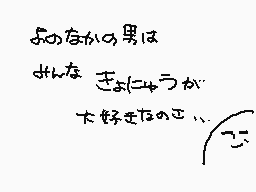 よのなかの男は
みんな きょにゅうが
大好きなのさ、、